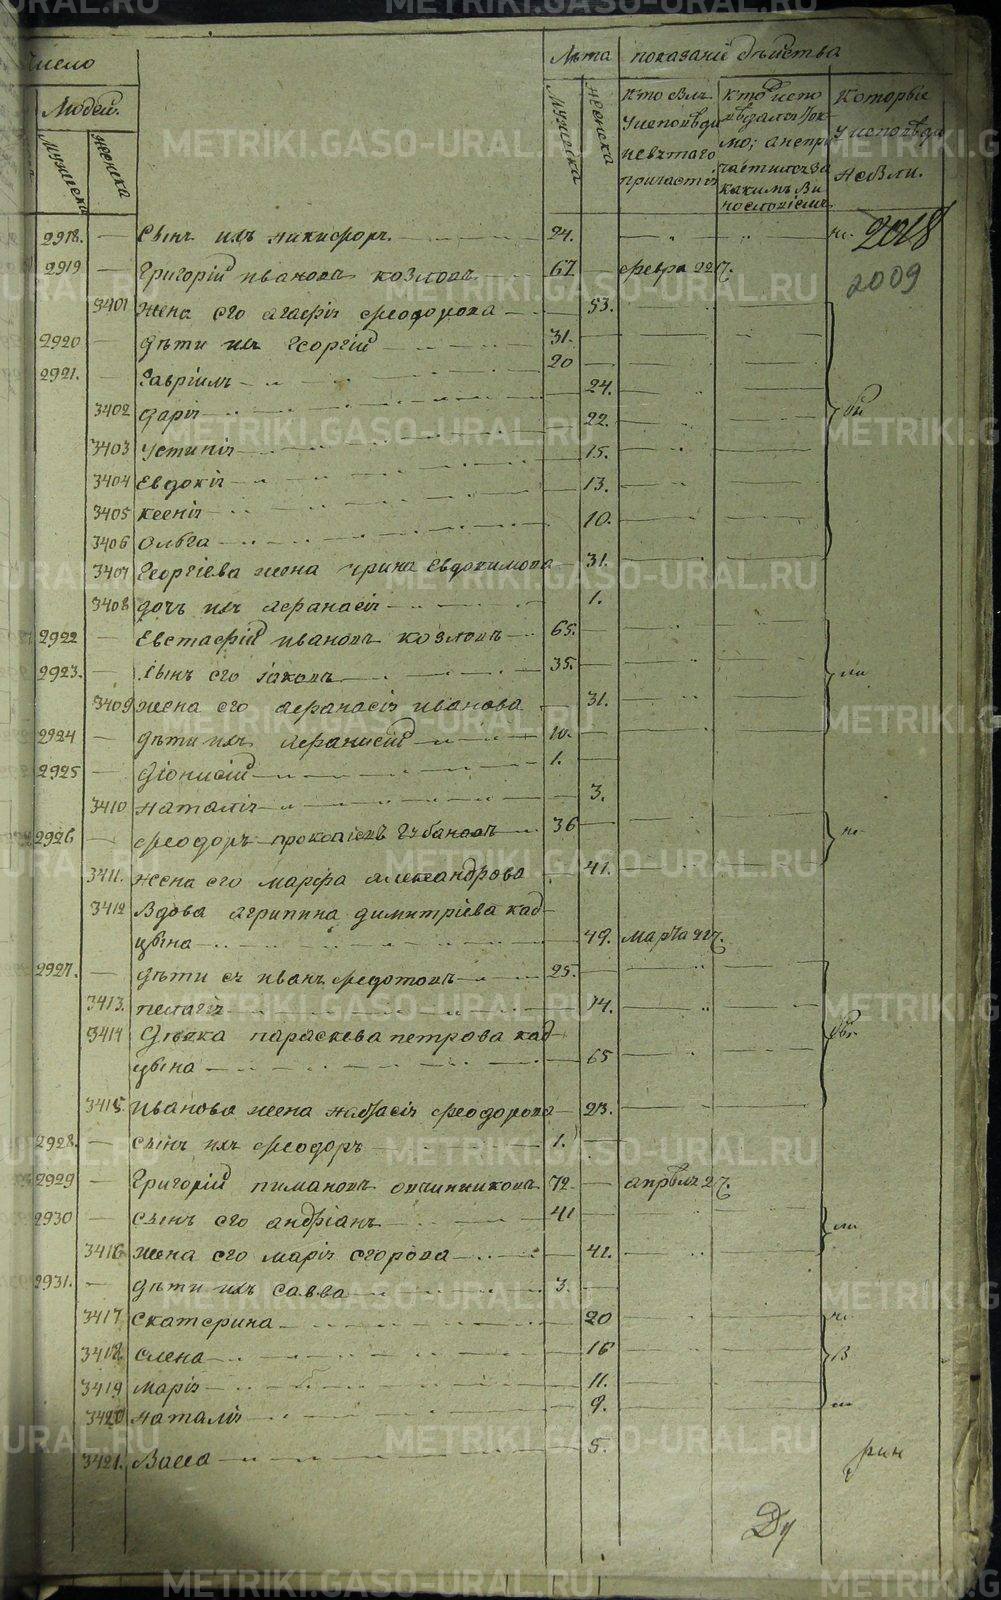 Число
Людей.
мужеска
женска
Лѣта
мужеска
женска
показаніе дѣйства
Кто былъ
у исповѣди
и свѣтаго
причастія
Кто испо
вѣдался ток
мо, а не при
частился за
какимъ ви
нословіемъ.
Которые
у исповѣди
не были.
2918. — Сынъ ихъ никифоръ 24. — 2018
2009
2919 — Григорій ивановъ козловъ 67 — февра 22 д.
3401 жена его агафія феодорова 53.
2920 — дѣти ихъ Георгій 31.
2921. — Гавріилъ 20
3402 дарія 24.
3403 Устинія 22.
3404 Евдокія 15.
3405 ксенія 13.
3406 Ольга 10.
3407 Георгіева жена ирина Евдокимова 31.
3408 дочь ихъ афанасія 1.
2922 — Евстафій ивановъ козловъ 65.
2923. — Сынъ его іаковъ 35.
3409 жена его афанасія иванова 31.
2924 — дѣти ихъ афанасій 10.
2925 — діонисій 1.
3410 наталія 3.
2926 — феодоръ прокопіевъ Губановъ 36
3411. жена его марфа александрова 41.
3412 Вдова агрипина димитріева кад
цына 49. марта
2927. — дѣти ея иванъ федотовъ 25.
3413. пелагія 14.
3414 Дѣвка параскева петрова кад
цына 65
3415 иванова жена настасія феодорова 23.
2928. — сынъ ихъ феодоръ 1.
2929 — Григорій пимановъ овчинниковъ 72 — апрѣль
2930 — сынъ его андріанъ 41
3416 жена его марія егорова 41.
2931. — дѣти ихъ савва 3.
3417 Екатерина 20
3418 елена 16
3419 марія 11.
3420 наталія 9.
3421. Васса 5.